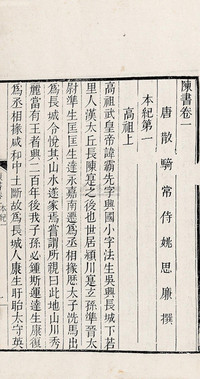 陳書卷一
唐散騎常侍姚思廉撰
本紀第一
高祖上
高祖武皇帝諱霸先字興國小字法生吳興長城下若
里人漢太丘長陳寔之後也世居潁川寔玄孫準晉太
尉準生匡匡生達永嘉南遷為丞相掾歷太子洗馬出
為長城令悅其山水遂家焉嘗謂所親曰此地山川秀
麗當有王者興二百年後我子孫必鍾斯運達生康復
為丞相掾咸和中土斷故為長城人康生盱眙太守英